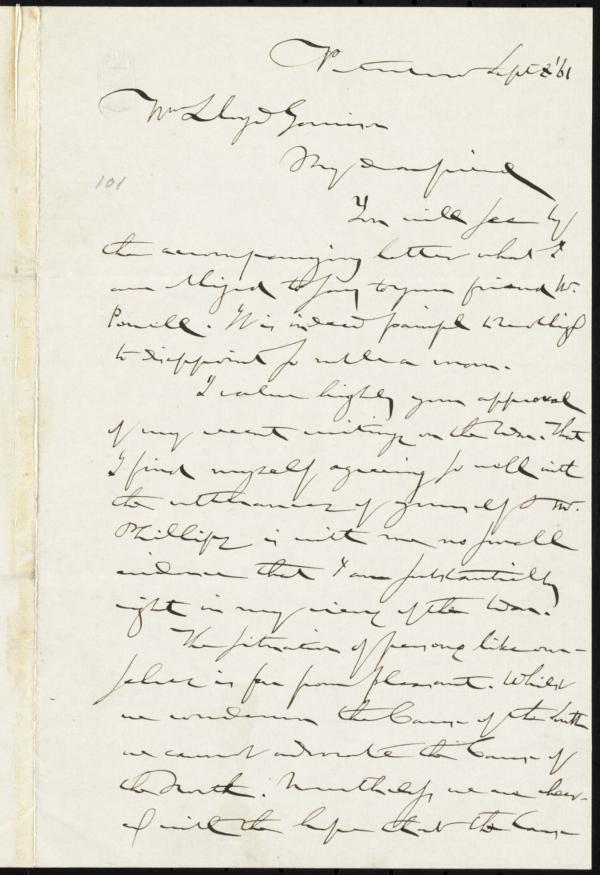 Peterboro Sept 2 '61
Wm Lloyd Garrison
101
My dear friend
You will see by
the accompanying letter what I
am obliged to say to your friend Mr.
Powell. It is indeed painful to
to disappoint so noble a man.
I value highly your approval
of my recent writings on the War. That
I find myself agreeing so well with
the utterances of yourself & Mr.
Phillips is with me no small
evidence that I am substantially
right in my views of the War.
The situation of persons like our-
selves is far from pleasant. Whilst
we condemn the Cause of the South
we cannot advocate the Cause of
the North. Nevertheless we are cheer-
ed with the hope that the Cause